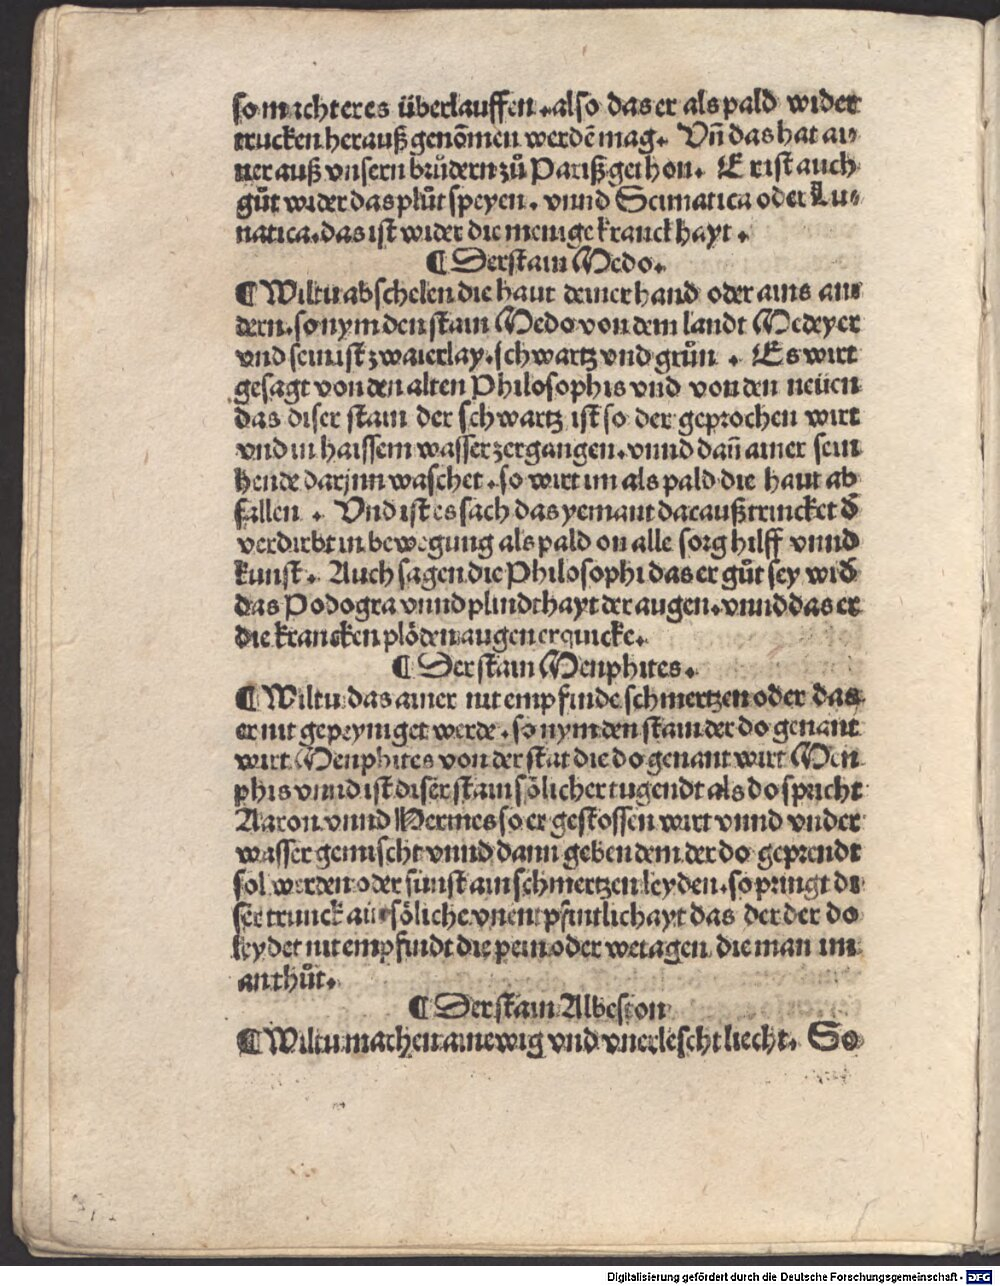 so macht er es überlauffen. also das er als pald wider
trucken herauß genōmen werdē mag. Vn̄ das hat ai⸗
ner auß vnsern brůdern zů Pariß gethon. Er ist auch
gůt wider das plůt speyen. vnnd Scimatica oder Lu⸗
natica. das ist wider die menige kranckhayt.
¶ Der stain Medo.
¶ Wiltu abschelen die haut deiner hand oder ains an⸗
dern. so nym den stain Medo von dem landt Medeyer
vnd sein ist zwaierlay. schwartz vnd grůn. Es wirt
gesagt von den alten Philosophis vnd von den neüen
das diser stain der schwartz ist so der geprochen wirt
vnd in haissem wasser zergangen. vnnd dan̄ ainer sein
hende darjnn waschet. so wirt im als pald die haut ab
fallen. Vnd ist es sach das yemant darauß trincket đ
verdirbt in bewegung als pald on alle sorg hilff vnnd
kunst. Auch sagen die Philosophi das er gůt sey wiđ
das Podogra vnnd plindthayt der augen. vnnd das er
die krancken plöden augen erquicke.
¶ Der stain Menphites.
¶ Wiltu das ainer nit empfinde schmertzen oder das
er nit gepeyniget werde. so nym den stain der do genant
wirt Menphites von der stat die do genant wirt Men
phis vnnd ist diser stain sölicher tugendt als do spricht
Aaron vnnd Hermes so er gestossen wirt vnnd vnder
wasser gemischt vnnd dann geben dem der do geprendt
sol werden oder sunst ain schmertzen leyden. so pringt di
ser trunck ain söliche vnentpfintlichayt das der der do
leydet nit empfindt die pein oder wetagen die man im
an thůt.
¶ Der stain Albeston
¶ Wiltu machen ain ewig vnd vnerlescht liecht. So
Digitalisierung gefördert durch die Deutsche Forschungsgemeinschaft - DFG